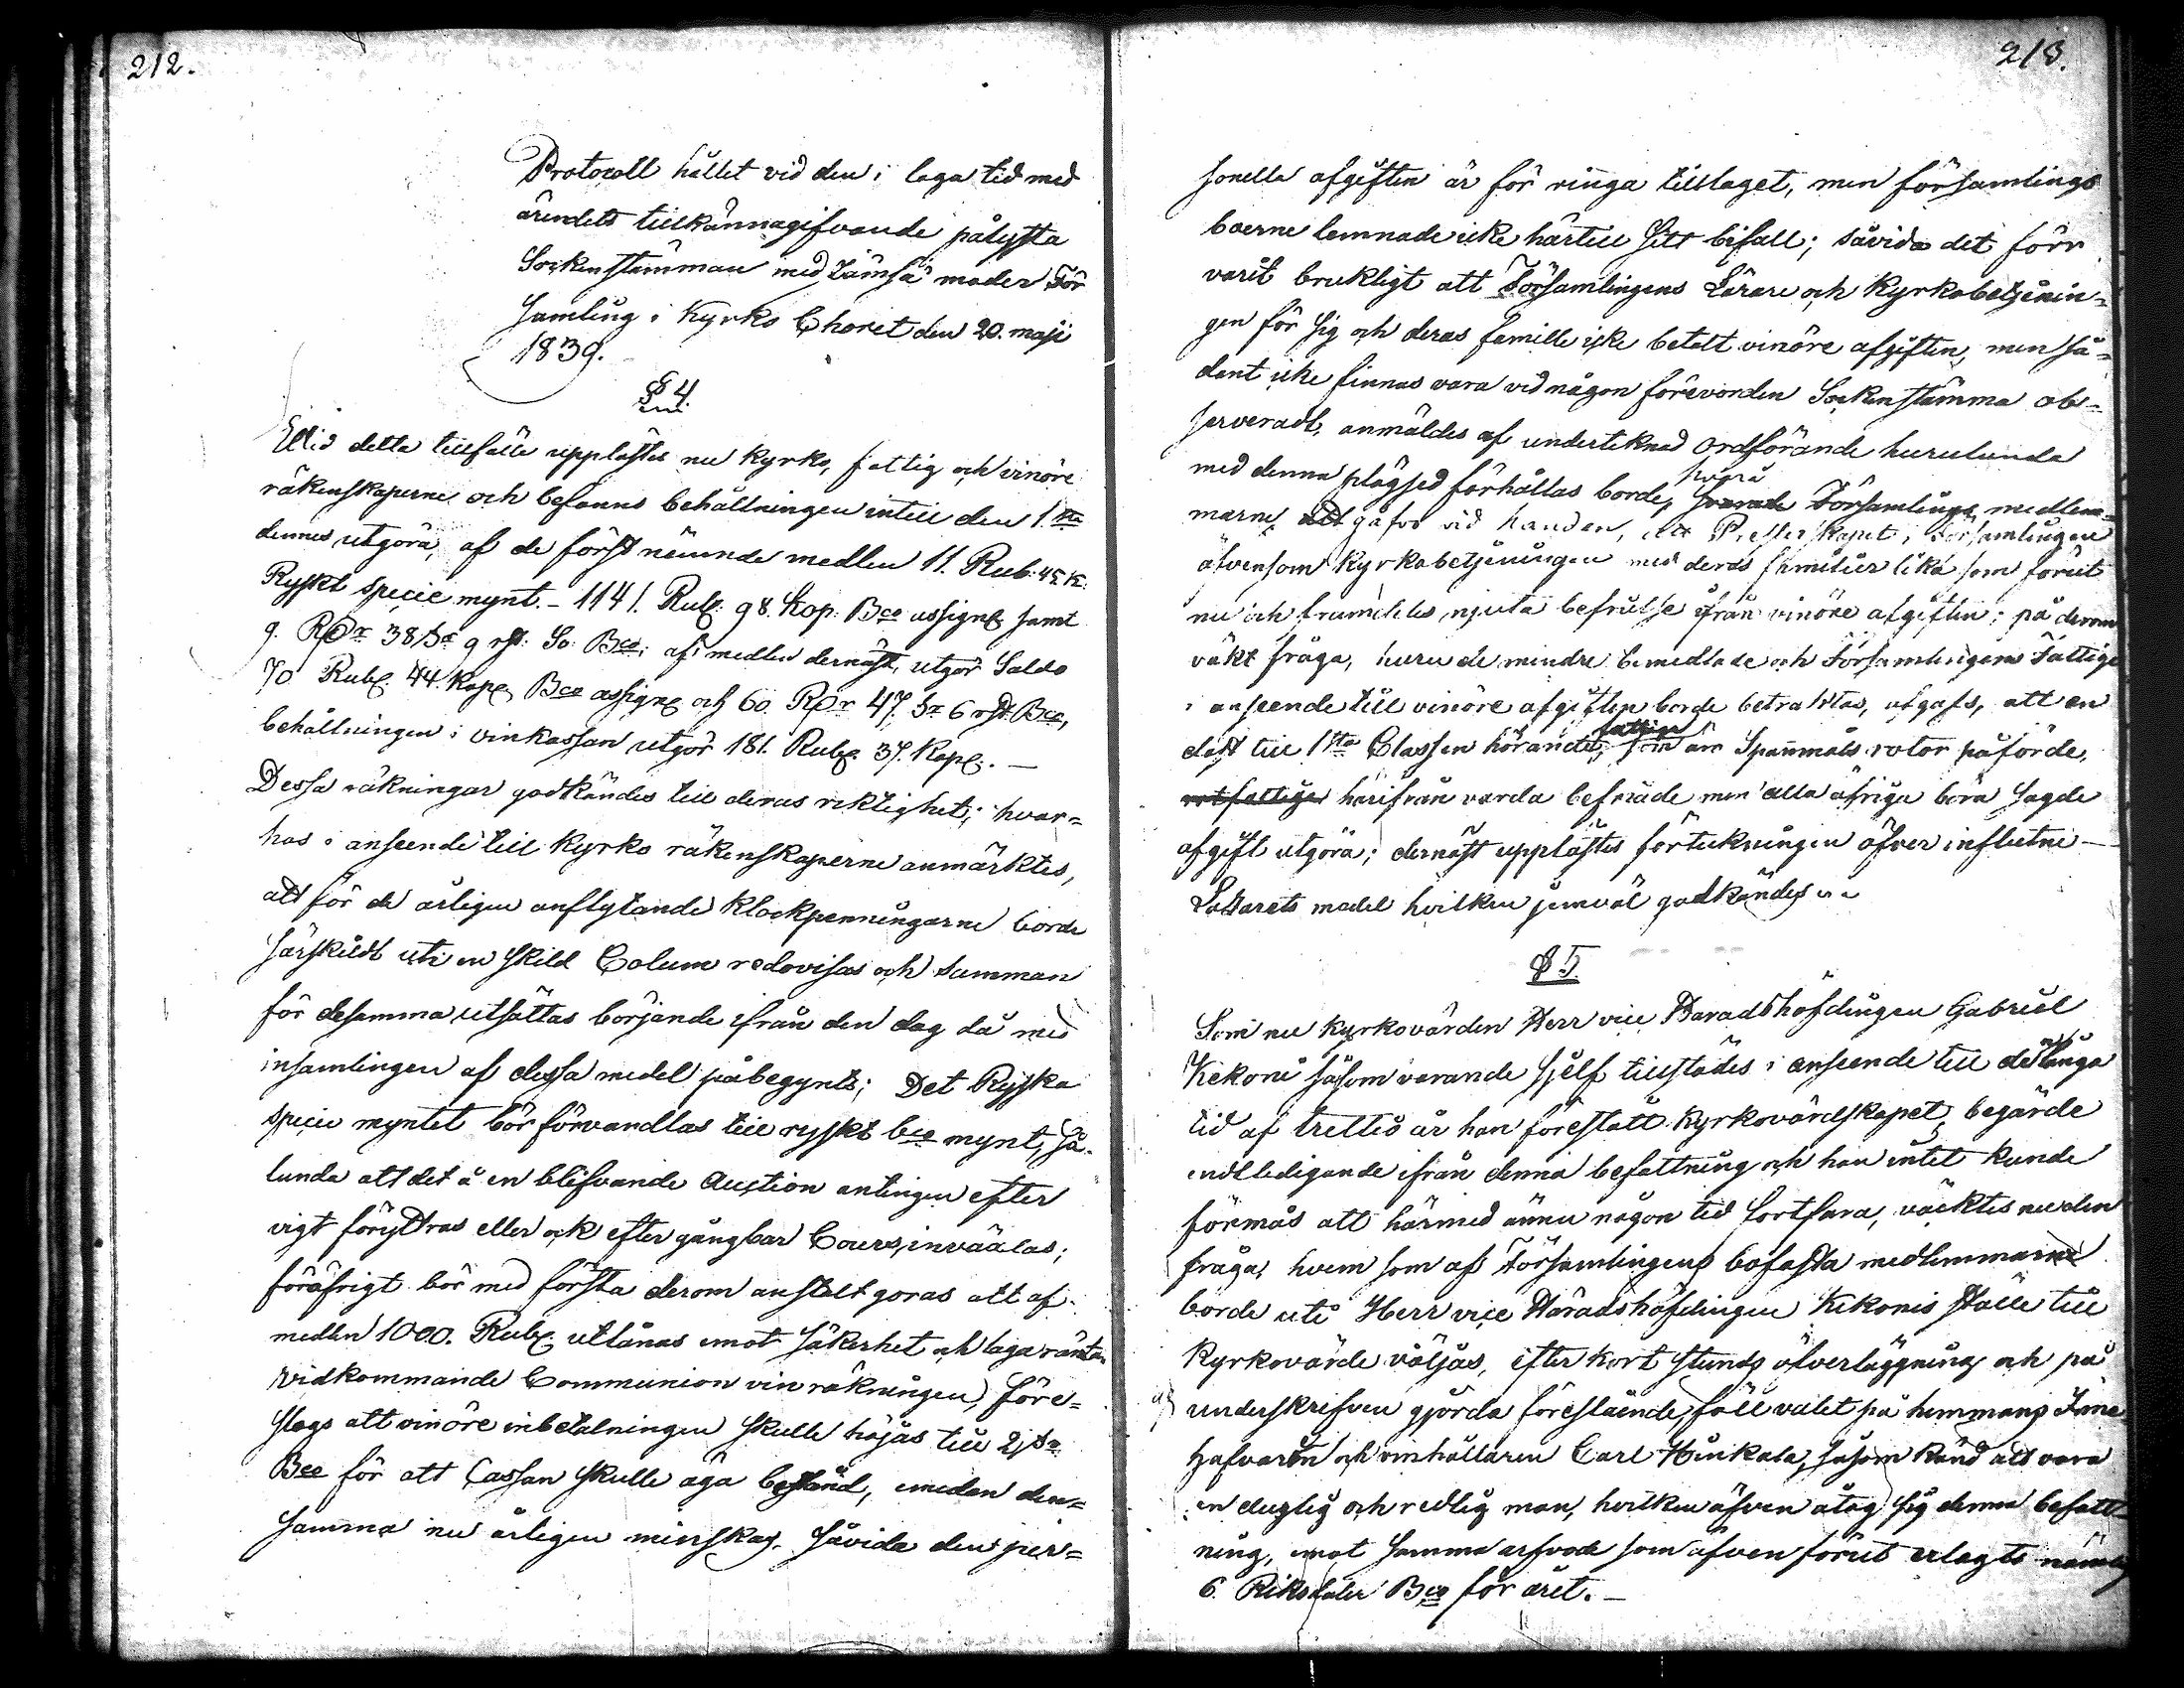 212.
Protocoll hållet vid den i laga tid med
ärendets tillkännagifvande pålysta
Sockenstämman med Jämsä moder För
samling i Kyrko Choret den 20. maji
1839.
§ 4
Vid detta tillfälle upplästes nu Kyrko, fattig och vinöre
räkenskaperne och befanns behållningen intill den 1.sta
dennes utgöra, af de först nämnde medlen 11. Rub: 45 K:
Ryskt specie mynt. – 1141. Rub: 98. Kop: Bco assigne samt
9. RDr 38 sr 9 rst: So: Bco; af medlen dernäst, utgör Saldo
70 Rub. 44. Kop. Bco assigne och 60. RDr 47. sr 6 rst. Bco,
behållningen i vinkassan utgör 181. Rub. 37. Kop. –
Dessa räkningar godkändes till deras riktighet; hvar=
hos i anseende till Kyrko räkenskaperne anmärktes,
att för de årligen anflytande Klockpenningarne borde
särskildt uti en skild Colum redovisas och summan
för desamma utsättas börjande ifrån den dag då med
insamlingen af dessa medel påbegynts; Det Ryska
specie myntet bör förvandlas till ryskt bco mynt, så=
lunda att det å en blifvande Auction antingen efter
vigt föryttras eller ock efter gångbar Cours, inväxlas;
föröfrigt bör med första derom anstalt göras att af
medlen 1000. Rub. utlånas emot säkerhet och laga ränta
vidkommande Communion vin räkningen, före=
slogs att vinöre inbetalningen skulle höjas till 2 sr
Bco för att Cassan skulle äga bestånd, emedan den=
samma nu årligen minskas. såvida den per=
213.
sonella afgiften är för ringa tilltaget, men församlings
boerne lemnade icke härtill sitt bifall; såvida det förr
varit brukligt att Församlingens Lärare och Kyrkobetjenin=
gen för sig och deras familie icke betalt vinöre afgiften, men så=
dant icke finnas vara vid någon förevorden Sockenstämma ob=
serveradt, anmäldes af undertecknad Ordförande hurulunda
med denna plägsed förhållas borde, hvarå Församlings medlem=
marne gåfvo vid handen, att Presterskapet i Församlingen
äfvensom Kyrkobetjeningen med deras familier lika som förut
nu och framdeles njuta befrielse ifrån vinöre afgiften; på derom
väkt fråga, huru de mindre bemedlade och Församlingens Fattige
i anseende till vinöre afgiften borde betraktas, afgafs, att en
dast till 1sta Classen hörande fattige, som äro Spannmåls rotor påförde,
rotfattige härifrån varda befriade men alla öfriga böra sagde
afgift utgöra; dernäst upplästes förteckningen öfver influtne –
Lazarets medel hvilken jemväl godkändes
§ 5
Som nu Kyrkovärden Herr vice Häradshöfdingen Gabriel
Kekoni såsom varande sjelf tillstädes i anseende till den långa
tid af trettio år han förestått Kyrkovärdskapet, begärde
entledigande ifrån denna befattning och han intet kunde
förmås att härmed ännu någon tid fortfara, väcktes nu den
fråga, hvem som af Församlingens bofasta medlemmarne
borde uti Herr vice Häradshöfdingen Kekonis ställe till
Kyrkovärde väljas, efter kort stunds öfverläggning och på
af underskrifven gjorda föreslående föll valet på hemmans Inne
hafvaren och vinhållaren Carl Hinkala, såsom känd att vara
en duglig och redlig man, hvilken äfven åtog sig denna befatt=
ning, emot samma arfvode som äfven förut erlagts nämlig
6. Riksdaler Bco för året. –